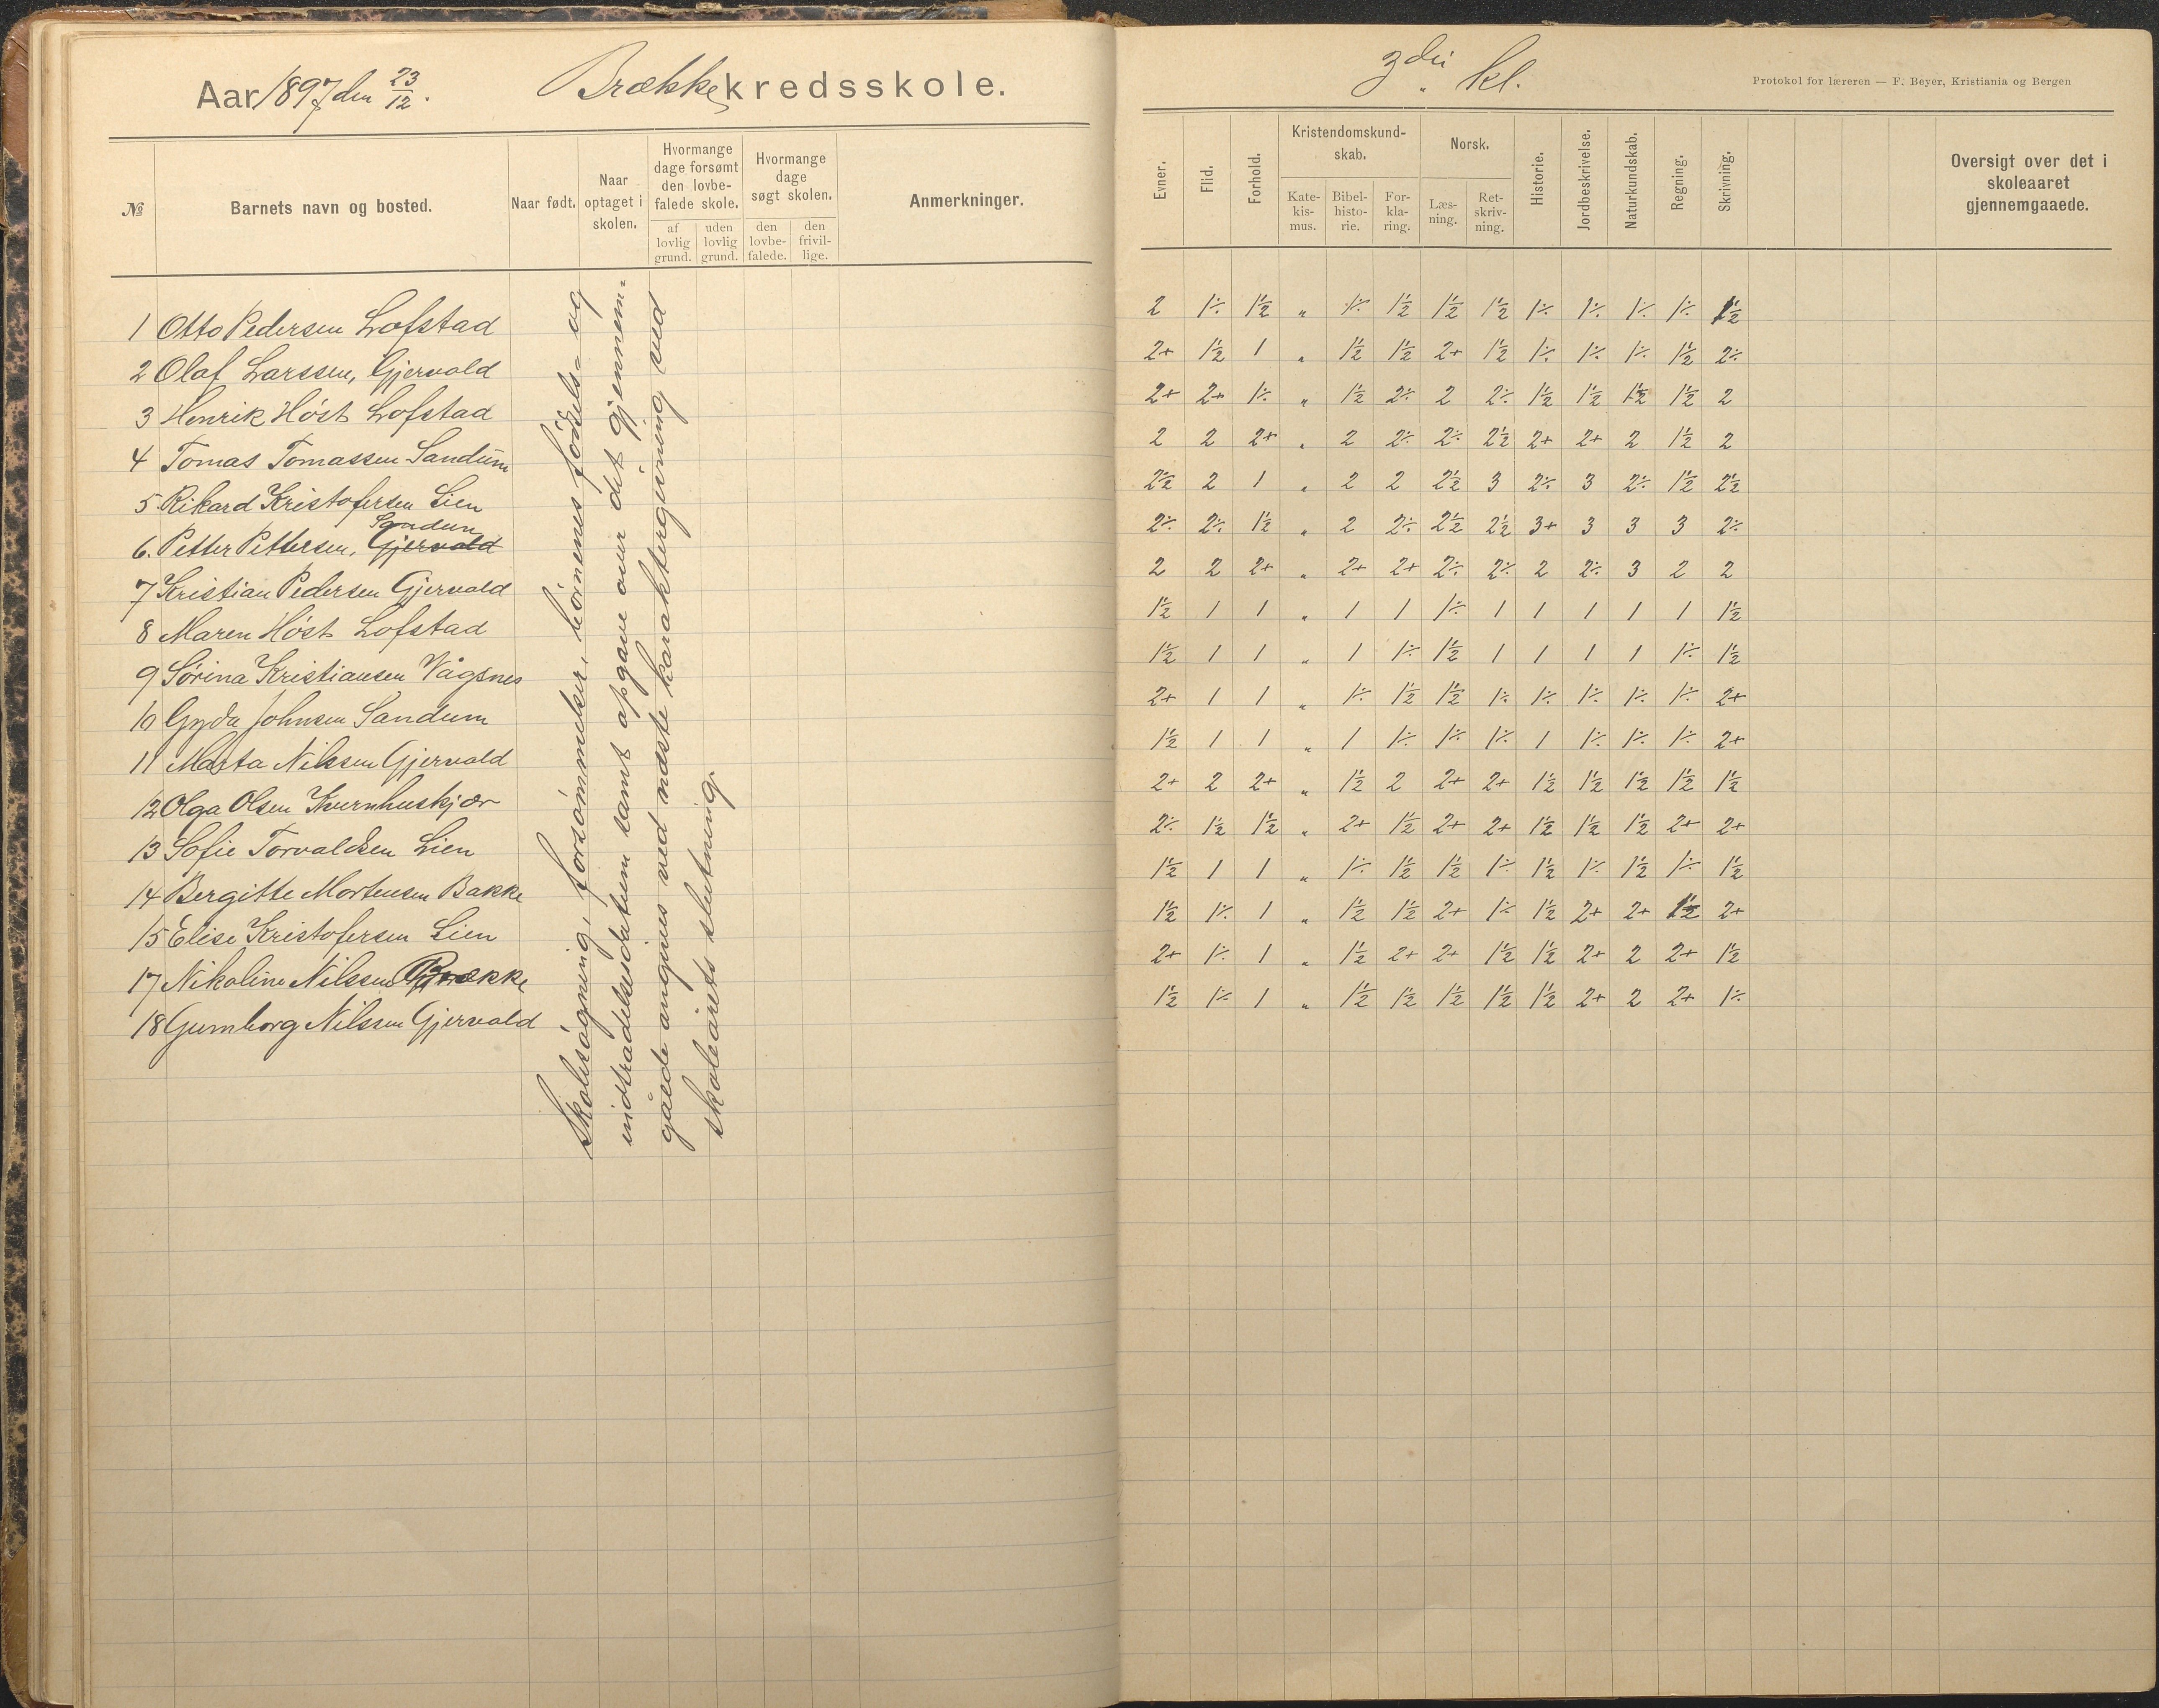 Aar 1897 den 23/12.
Brække kredsskole.
№
Barnets navn og bosted.
Naar født.
Naar optaget i skolen.
Hvormange dage forsømt den lovbefalede skole.
af lovlig grund.
uden lovlig grund.
Hvormange dage søgt skolen.
den lovbefalede.
den frivillige.
Anmerkninger.
1 Otto Pedersen Lofstad
2 Olaf Larssen, Gjervold
3 Henrik Höst Lofstad
4 Tomas Tomassen Sandum
5. Rikard Kristofersen Lien
6. Petter Pettersen, Gjervold Sandum
7 Kristian Pedersen Gjervold
8 Maren Höst Lofstad
9 Sörina Kristiansen Vågsnes
10 Gyda Johnsen Sandum
11 Marta Nilssen Gjervold
12 Olga Olsen Kvernhuskjær
13 Sofie Torvaldsen Lien
14 Bergitte Mortensen Bakke
15 Elise Kristofersen Lien
17 Nikoline Nilssen Brække
18 Gumborg Nilssen Gjervold
Skolesögning, forsömmelser, börnenes födsels- og
indtrædelsesdatum samt opgave over det gjennem-
gåede angives ved næste karaktergivning ved
skoleårets slutning.
3die kl.
Protokol for læreren — F. Beyer, Kristiania og Bergen
Evner.
Flid.
Forhold.
Kristendomskundskab.
Katekismus.
Bibelhistorie.
Forklaring.
Norsk.
Læsning.
Retskrivning.
Historie.
Jordbeskrivelse.
Naturkundskab.
Regning.
Skrivning.
Oversigt over det i skoleaaret gjennemgaaede.
2 1÷ 1½ „ 1÷ 1½ 1½ 1½ 1÷ 1÷ 1÷ 1÷ 1½
2+ 1½ 1 „ 1½ 1½ 2+ 1½ 1÷ 1÷ 1÷ 1½ 2÷
2+ 2+ 1÷ „ 1½ 2÷ 2 2÷ 1½ 1½ 1½ 1½ 2
2 2 2+ „ 2 2÷ 2÷ 2½ 2+ 2+ 2 1½ 2
2½ 2 1 „ 2 2 2½ 3 2÷ 3 2÷ 1½ 2½
2÷ 2÷ 1½ „ 2 2÷ 2½ 2½ 3+ 3 3 3 2÷
2 2 2+ „ 2+ 2+ 2÷ 2÷ 2 2÷ 3 2 2
1½ 1 1 „ 1 1 1÷ 1 1 1 1 1 1½
1½ 1 1 „ 1 1÷ 1½ 1 1 1 1 1÷ 1½
2+ 1 1 „ 1÷ 1½ 1½ 1÷ 1÷ 1÷ 1÷ 1÷ 2+
1½ 1 1 „ 1 1÷ 1÷ 1÷ 1 1÷ 1÷ 1÷ 2+
2+ 2 2+ „ 1½ 2 2+ 2+ 1½ 1½ 1½ 1½ 1½
2÷ 1½ 1½ „ 2+ 1½ 2+ 2+ 1½ 1½ 1½ 2+ 2+
1½ 1 1 „ 1÷ 1½ 1½ 1÷ 1½ 1÷ 1½ 1÷ 1½
1½ 1÷ 1 „ 1½ 1½ 2+ 1÷ 1½ 2+ 2+ 1½ 2+
2+ 1÷ 1 „ 1½ 2+ 2+ 1½ 1½ 2+ 2 2+ 1½
1½ 1÷ 1 „ 1½ 1½ 1½ 1½ 1½ 2+ 2 2+ 1÷